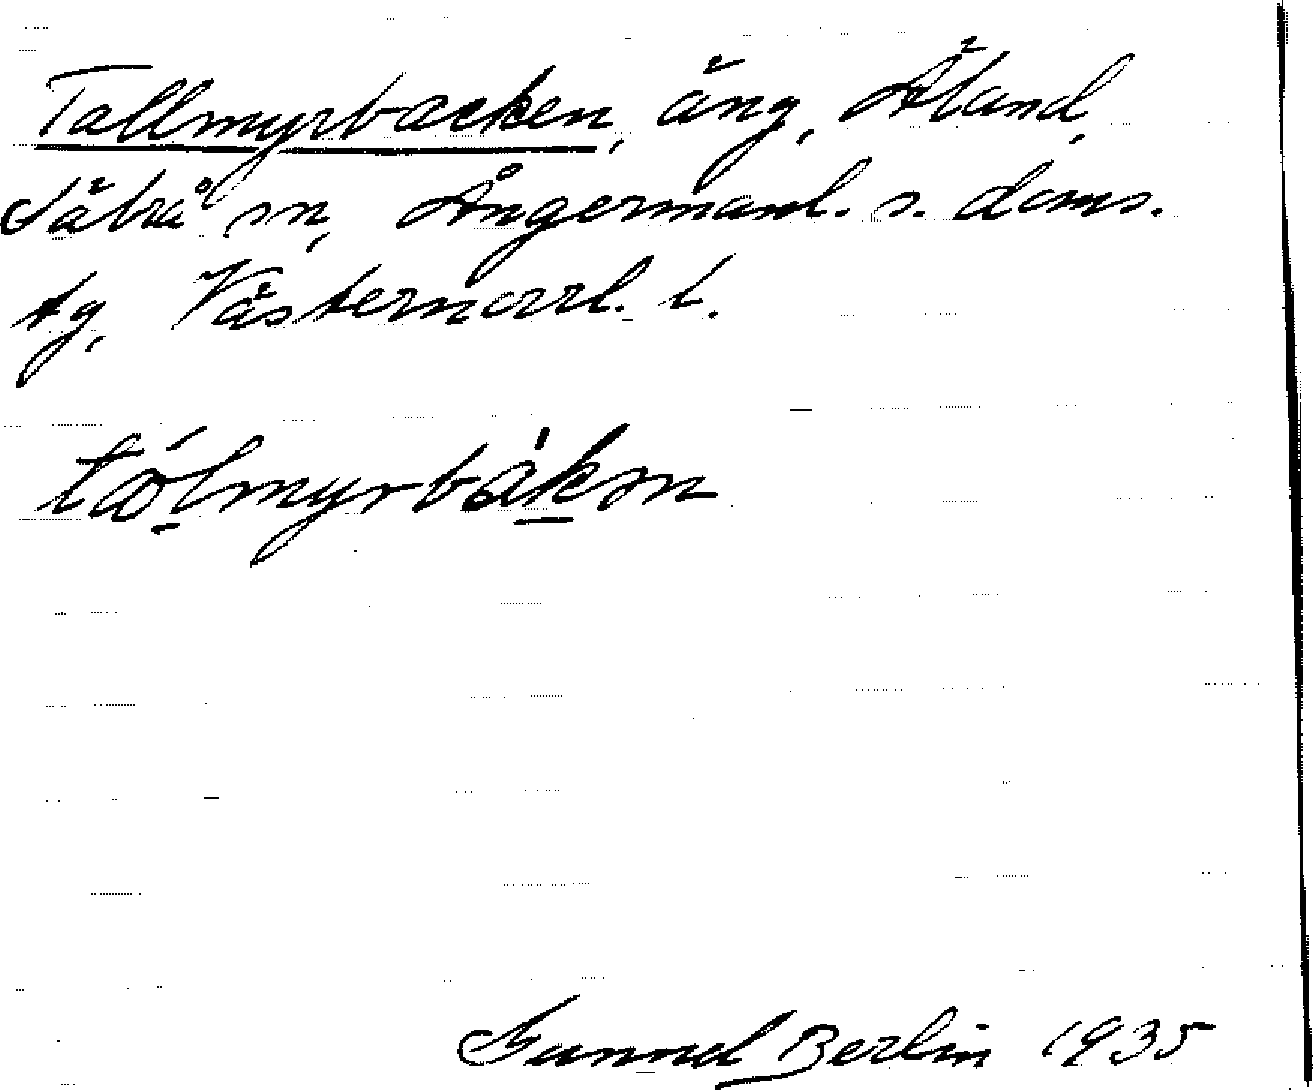 Tallmyrbacken, äng, Äland,
Säbrå sn, Ångermanl. s. doms.
tg, Västernorrl. l.
tálmyrbàkən
Gunnel Berlin 1935